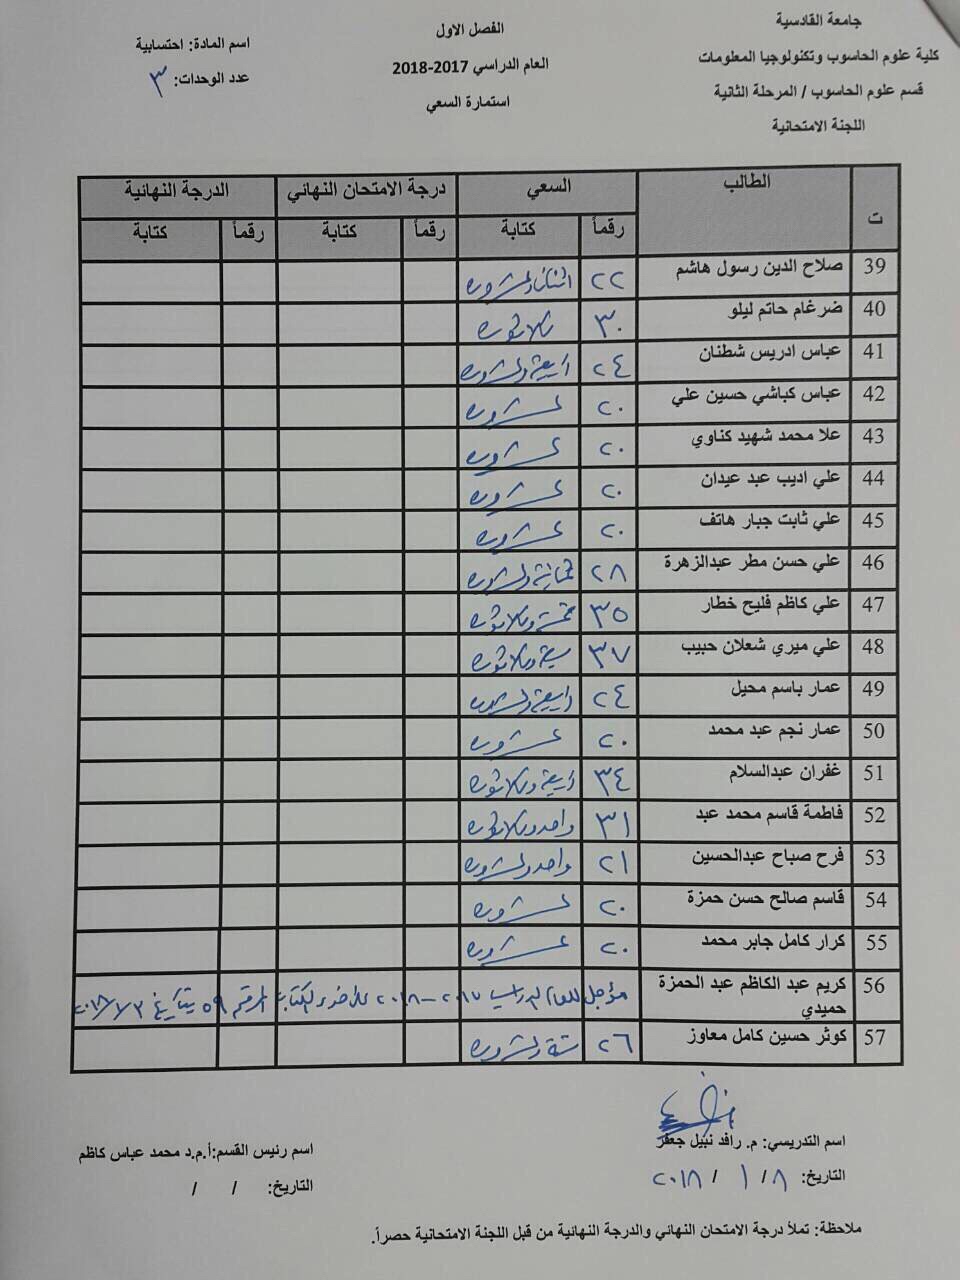 جامعة القادسية
كلية علوم الحاسوب وتكنولوجيا المعلومات
قسم علوم الحاسوب / المرحلة الثانية
اللجنة الامتحانية
الفصل الاول
العام الدراسي 2017-2018
استمارة السعي
اسم المادة: احتسابية
عدد الوحدات: ٣
ت الطالب السعي درجة الامتحان النهائي الدرجة النهائية
رقماً كتابة رقماً كتابة رقماً كتابة
39 صلاح الدين رسول هاشم ٢٢ اثنان وعشرون
40 ضرغام حاتم ليلو ٣٠ ثلاثون
41 عباس ادريس شطنان ٢٤ اربعة وعشرون
42 عباس كباشي حسين علي ٢٠ عشرون
43 علا محمد شهيد كناوي ٢٠ عشرون
44 علي اديب عبد عيدان ٢٠ عشرون
45 علي ثابت جبار هاتف ٢٠ عشرون
46 علي حسن مطر عبدالزهرة ٢٨ ثمانية وعشرون
47 علي كاظم فليح خطار ٣٥ خمسة وثلاثون
48 علي ميري شعلان حبيب ٣٧ سبعة وثلاثون
49 عمار باسم محيل ٢٤ اربعة وعشرون
50 عمار نجم عبد محمد ٢٠ عشرون
51 غفران عبدالسلام ٣٤ اربعة وثلاثون
52 فاطمة قاسم محمد عبد ٣١ واحد وثلاثون
53 فرح صباح عبدالحسين ٢١ واحد وعشرون
54 قاسم صالح حسن حمزة ٢٠ عشرون
55 كرار كامل جابر محمد ٢٠ عشرون
56 كريم عبد الكاظم عبد الحمزة حميدي مؤجل للعام الدراسي ٢٠١٧-٢٠١٨ الكتاب المرقم ٥٩ بتاريخ
57 كوثر حسين كامل معاوز ٢٦ ستة وعشرون
اسم التدريسي: م. رافد نبيل جعفر
التاريخ: ٨ / ١ / ٢٠١٨
اسم رئيس القسم:أ.م.د محمد عباس كاظم
التاريخ: / /
ملاحظة: تملأ درجة الامتحان النهائي والدرجة النهائية من قبل اللجنة الامتحانية حصراً.